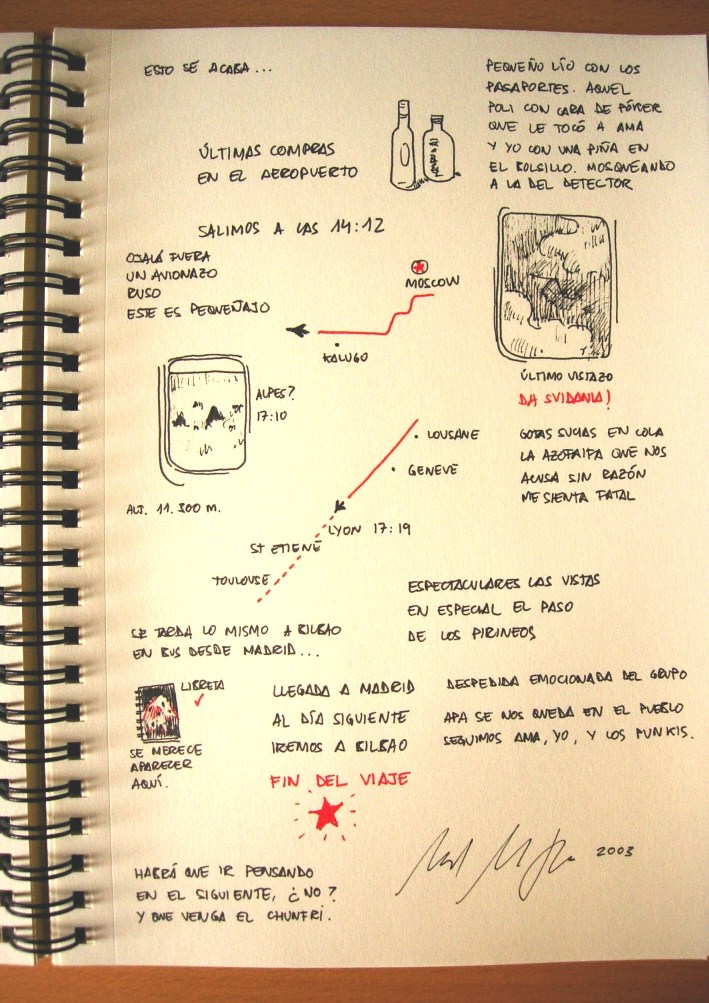 ESTO SE ACABA...
PEQUEÑO LÍO CON LOS
PASAPORTES. AQUEL
POLI CON CARA DE PÓKER
QUE LE TOCÓ A AMA
Y YO CON UNA PIÑA EN
EL BOLSILLO. MOSQUEANDO
A LA DEL DETECTOR
ÚLTIMAS COMPRAS
EN EL AEROPUERTO
SALIMOS A LAS 14:12
OJALÁ FUERA
UN AVIONAZO
RUSO
ESTE ES PEQUEÑAJO
MOSCOW
KALUGO
ÚLTIMO VISTAZO
DA SVIDANIA!
ALPES?
17:10
ALT. 11.300 M.
LOUSANE
GENEVE
LYON 17:19
ST ETIENE
TOULOUSE
GOTAS SUCIAS EN COLA
LA AZOFAIFA QUE NOS
ACUSA SIN RAZÓN
ME SIENTA FATAL
ESPECTACULARES LAS VISTAS
EN ESPECIAL EL PASO
DE LOS PIRINEOS
SE TARDA LO MISMO A BILBAO
EN BUS DESDE MADRID...
LIBRETA
SE MERECE
APARECER
AQUÍ.
LLEGADA A MADRID
AL DÍA SIGUIENTE
IREMOS A BILBAO
FIN DEL VIAJE
DESPEDIDA EMOCIONADA DEL GRUPO
APA SE NOS QUEDA EN EL PUEBLO
SEGUIMOS AMA, YO, Y LOS PUNKIS.
2003
HABRÁ QUE IR PENSANDO
EN EL SIGUIENTE, ¿NO?
Y QUE VENGA EL CHUNFRI.